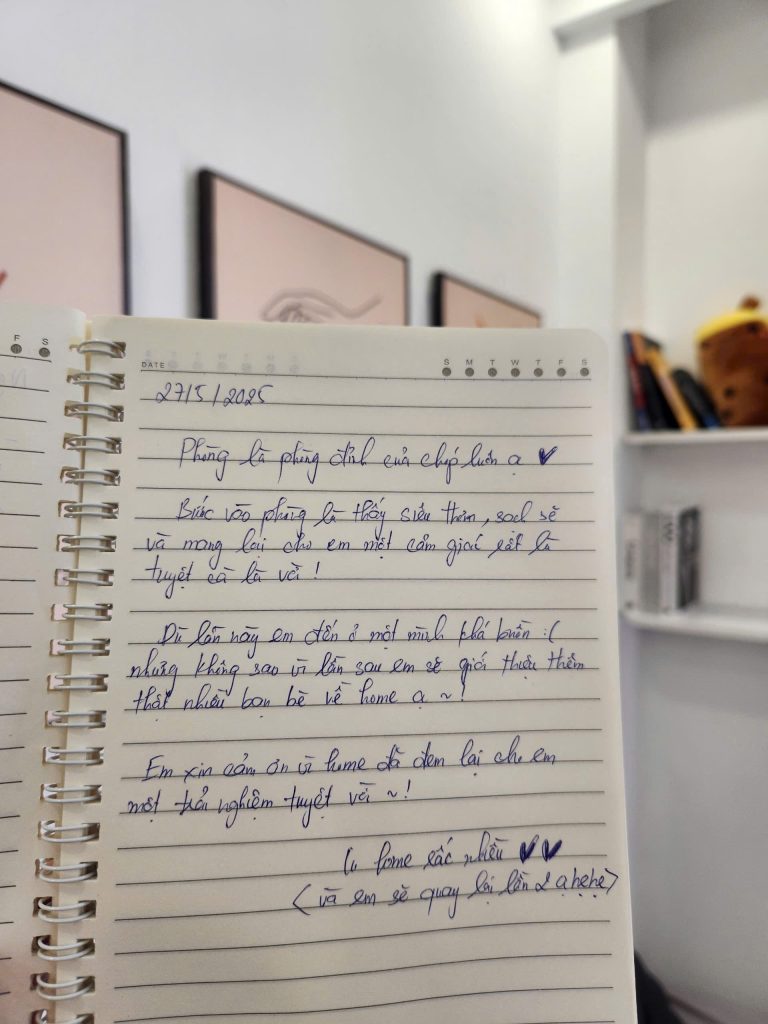 F S
DATE
S M T W T F S
27/5/2025
Phòng là phòng đỉnh của chóp luôn ạ
Bước vào phòng là thấy siêu thơm, sạch sẽ
và mang lại cho em một cảm giác rất là
tuyệt cà là vời !
Dù lần này em đến ở một mình khá buồn :(
nhưng không sao vì lần sau em sẽ giới thiệu thêm
thật nhiều bạn bè về home ạ ~ !
Em xin cảm ơn vì home đã đem lại cho em
một trải nghiệm tuyệt vời ~ !
iu home rất nhiều
( và em sẽ quay lại lần 2 ạ hẹ hẹ )